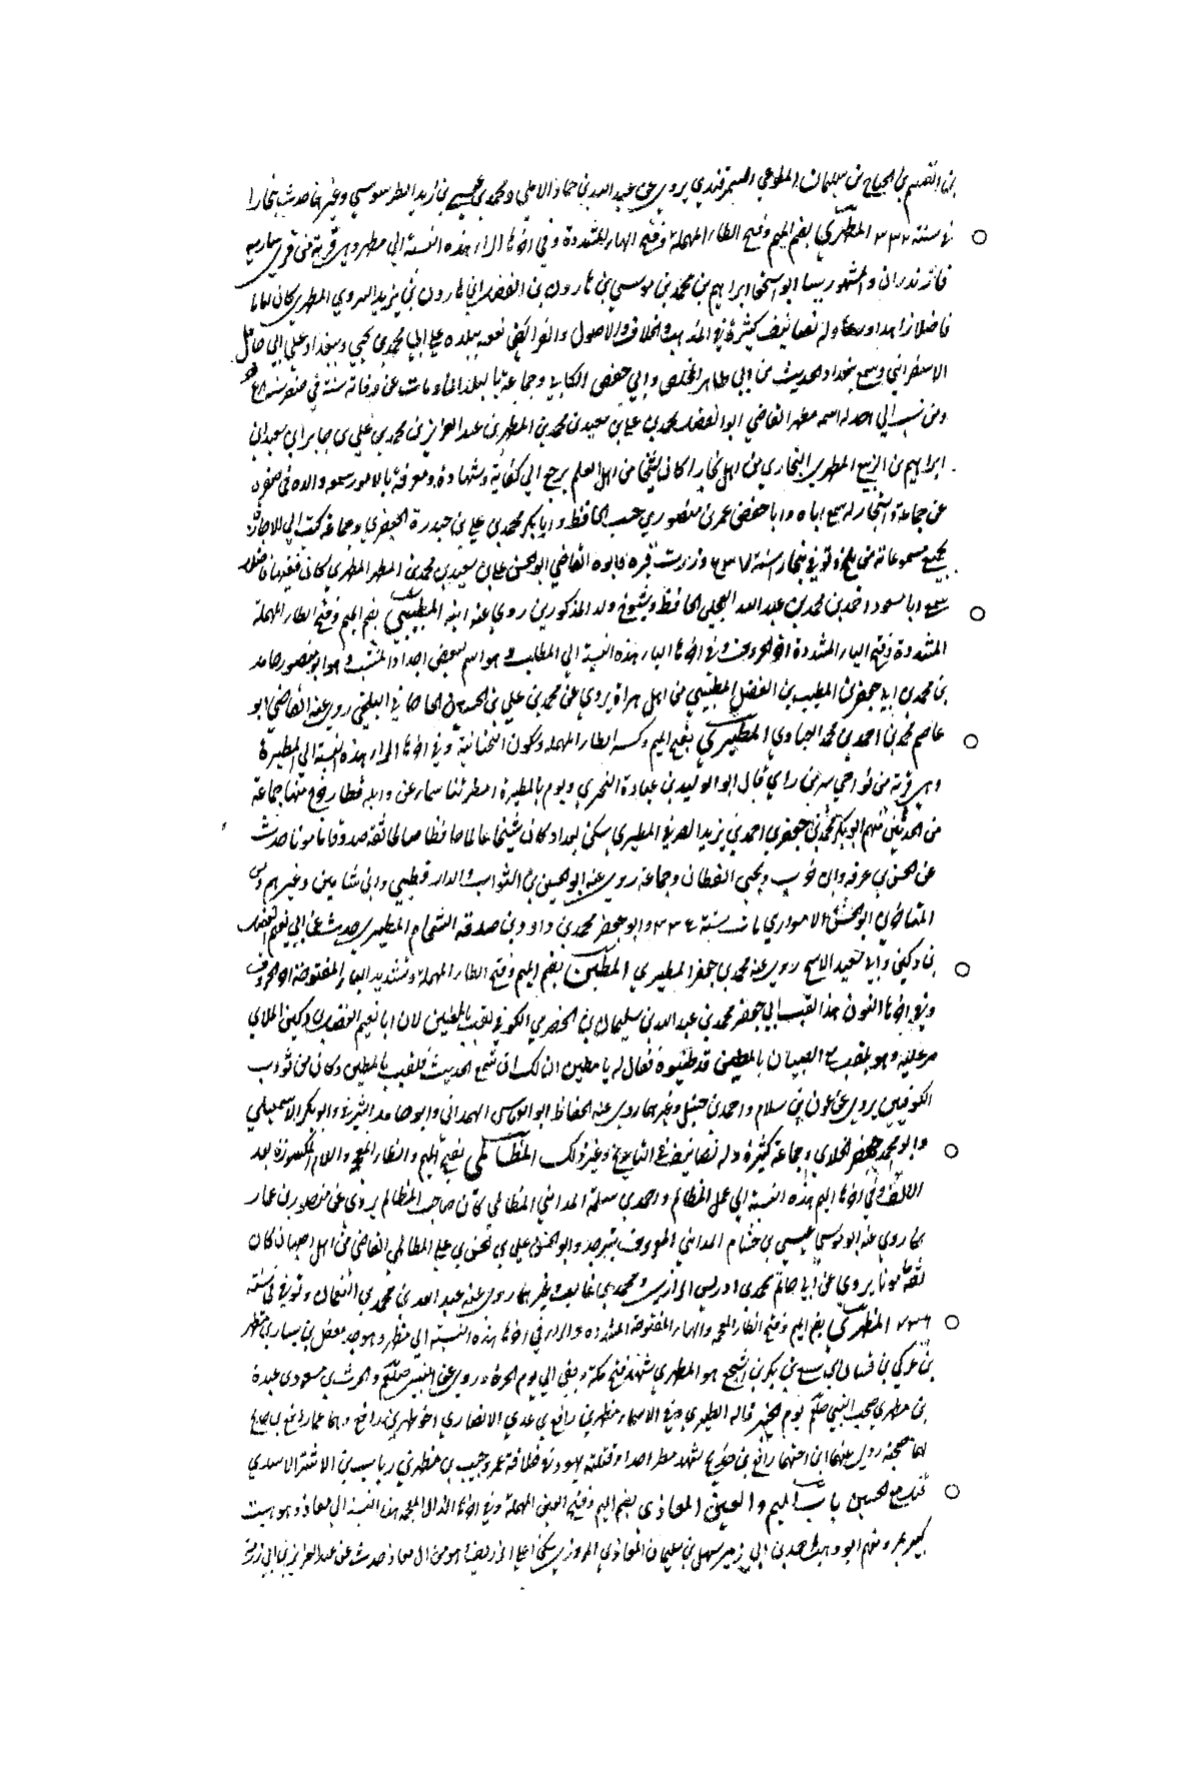 بن القسم بن الحجاج بن سليمان المطوعي السمرقندي يروي عن عبد الله بن حماد الاملي ومحمد بن عيسى بن زيد الطرسوسي وغيرهما حدث ببخارا
في سنة ٣٣٢ المطهري بضم الميم وفتح الطاء المهملة وفتح الهاء المشددة وفي اخرها الراء هذه النسبة الى مطهر وهي قرية من قرى سارية
مازندران والمشهور بها ابو اسحق ابراهيم بن محمد بن موسى بن هارون بن الفضل بن هارون بن يزيد السروي المطهري كان اماما
فاضلا زاهدا وله تصانيف كثيرة في المذهب والخلاف والاصول والفرائض تفقه ببلده على ابي محمد بن يحيى وببغداد على ابي حامد
الاسفرايني وسمع ببغداد الحديث من ابي طاهر المخلص وابي حفص الكتاني وجماعة ببلدنا ومات عن سنة في صفر سنة
ومن نسب الى جد له اسمه مطهر القاضي ابو الفضل محمد بن علي بن سعيد بن محمد بن المطهر بن عبد العزيز بن محمد بن علي بن جابر ابي سعد بن
ابراهيم بن الربيع المطهري البخاري من اهل بخارا كان شيخا من اهل العلم يرجع الى كفاية وشهادة ومعرفة بالامور سمعه والده في صغره
عن جماعة سمع اباه وابا حفص عمر بن منصور بن حسب الحافظ وابا بكر محمد بن علي بن حيدرة الجعفري وجماعة كتب الي الاجازة
بجميع مسموعاته من بلخ وتوفي ببخارا سنة وزرت قبره وابوه القاضي ابو الحسن علي بن سعيد بن محمد بن المطهر المطهري كان فقيها فاضلا
سمع ابا مسعود احمد بن محمد بن عبد الله البجلي الحافظ وشيوخ ولد المذكورين روى عنه ابنه المطيبي بضم الميم وفتح الطاء المهملة
المشددة وفتح الياء المشددة اخر الحروف وفي اخرها الباء هذه النسبة الى المطيب وهو اسم لبعض اجداد المنتسب وهو ابو منصور حامد
بن محمد بن ابي جعفر بن المطيب بن الفضل المطيبي من اهل هراة يروي عن محمد بن علي بن الحسين البلخي روى عنه القاضي ابو
عاصم محمد بن احمد بن محمد العبادي المطيري بفتح الميم وكسر الطاء المهملة وسكون التحتانية وفي اخرها الراء هذه النسبة الى المطيرة
وهي قرية من نواحي سر من راي قال ابو الوليد بن عبادة البحتري ويوم بالمطيرة امطرتنا سماء عن وابله قطار خرج منها جماعة
من المحدثين منهم ابو بكر محمد بن جعفر بن احمد بن يزيد الصيرفي المطيري سكن بغداد كان شيخا عالما حافظا صالحا ثقة صدوقا مامونا حدث
عن الحسن بن عرفة وابن حرب ويحيى القطان وجماعة روى عنه ابو الحسين بن البواب والدارقطني وابن شاهين وغيرهم ومن
المتاخرين ابو الحسن مات سنة ٣٣٤ وابو جعفر محمد بن داود بن صدقة الشحام المطيري حدث عن ابي نعيم الفضل
بن دكين وابي سعيد الاشج روى عنه محمد بن جعفر المطيري المطين بضم الميم وفتح الطاء المهملة وتشديد الياء المفتوحة اخر الحروف
وفي اخرها النون هذا لقب ابي جعفر محمد بن عبد الله بن سليمان بن الحضرمي الكوفي لقب بالمطين لان ابا نعيم الفضل بن دكين الملائي
مر عليه وهو يلعب مع الصبيان بالطين قد طينوه فقال له يا مطين ان لك ان تسمع الحديث فلقب بالمطين وكان من ثقات
الكوفيين يروي عن عون بن سلام واحمد بن حنبل وغيرهما روى عنه الحفاظ ابو العباس الهمداني وابو حامد الشرقي وابو بكر الاسمعيلي
وابو محمد جعفر الخلدي وجماعة كثيرة وله تصانيف في التاريخ وغير ذلك المظالمي بفتح الميم والظاء المعجمة واللام المكسورة بعد
الالف وفي اخرها الميم هذه النسبة الى عمل المظالم واحمد بن سلمة المدايني المظالمي كان صاحب المظالم يروي عن منصور بن عمار
روى عنه ابو موسى عيسى بن خشنام المدايني المعروف وابو الحسن علي بن الحسن بن علي المظالمي القاضي من اهل اصبهان كان
ثقة مامونا يروي عن ابي حاتم محمد بن ادريس الرازي ومحمد بن غالب وغيرهما روى عنه عبد الله بن محمد بن النعمان وتوفي في سنة
المظهري بضم الميم وفتح الظاء المعجمة والهاء المفتوحة المشددة والراء في اخرها هذه النسبة الى مظهر وهو جد معقل بن سنان بن مظهر
بن عركي بن فتيان بن سبيع بن بكر بن اشجع هو المظهري شهد فتح مكة وبقي الى يوم الحرة وروى عن النبي صلعم والحرث بن مسعود بن عبدة
بن مظهر صحب النبي صلعم يوم الجسر قاله الطبري وفي الاسماء مظهر بن رافع بن عدي الانصاري اخو ظهير بن رافع وهما عما رافع بن خديج
لهما صحبة روى عنهما ابن اخيهما رافع بن خديج شهد مظهر احدا وقتلته يهود في خلافة عمر وحبيب بن مظهر بن رباب بن الاشتر الاسدي
قتل مع الحسين باب الميم والعين المعاذي بضم الميم وفتح العين المهملة وفي اخرها الذال المعجمة هذه النسبة الى معاذ وهو بيت
كبير بمرو منهم ابو وهب احمد بن ابي زهير سهل بن سليمان المعاذي المروزي سكن هو من ال معاذ حدث عن عبد العزيز بن ابي رزمة